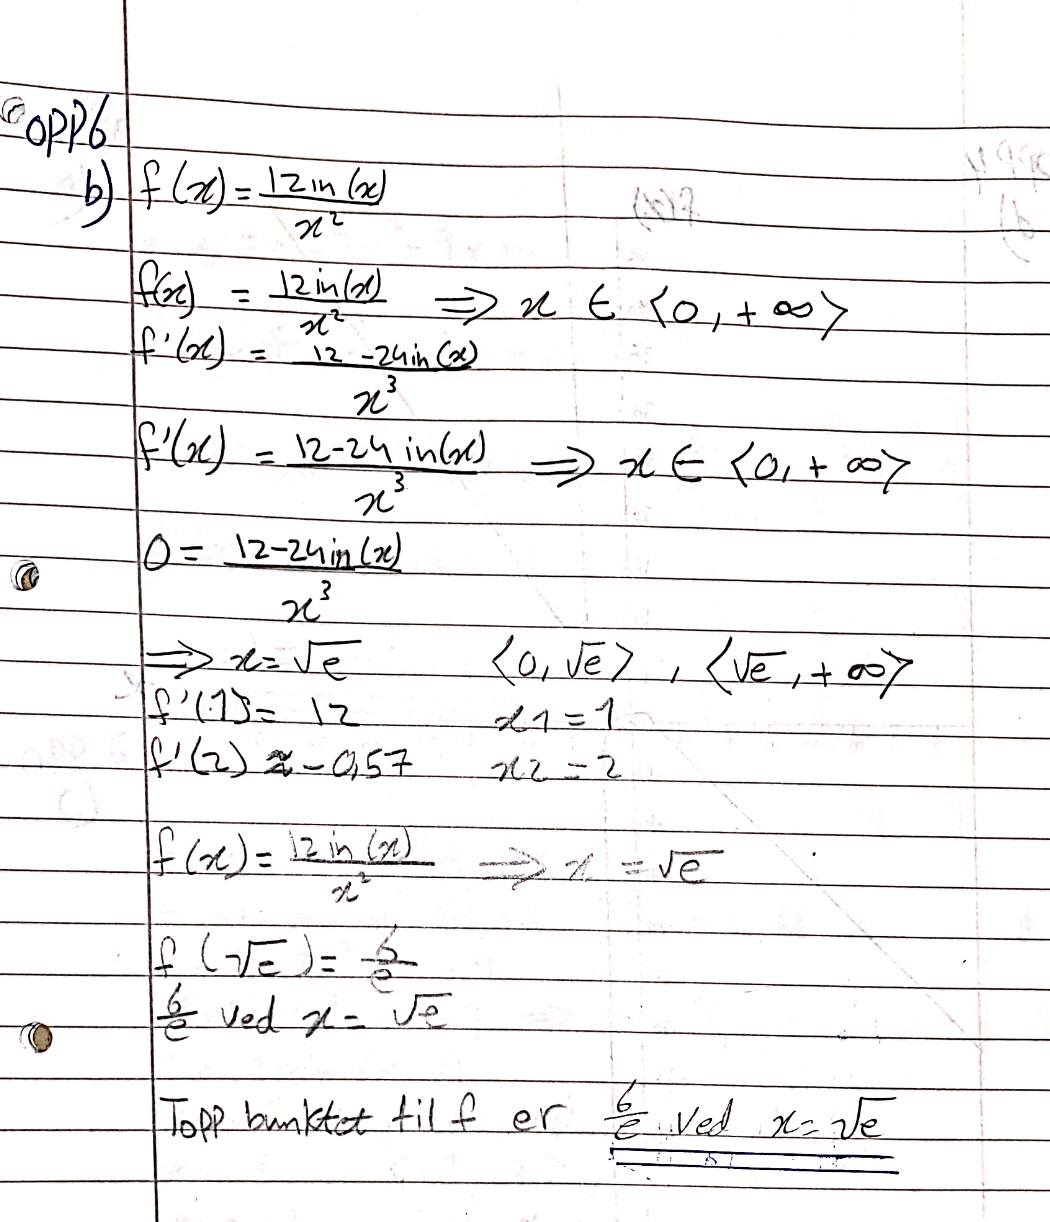 OPP6
b) f(x) = 12in(x) / x²
f(x) = 12in(x) / x² ⇒ x ∈ ⟨0, +∞⟩
f'(x) = 12-24in(x) / x³
f'(x) = 12-24in(x) / x³ ⇒ x ∈ ⟨0, +∞⟩
0 = 12-24in(x) / x³
⇒ x = √e ⟨0, √e⟩, ⟨√e, +∞⟩
f'(1) = 12 x1 = 1
f'(2) ≈ -0,57 x2 = 2
f(x) = 12in(x) / x² ⇒ x = √e
f(√e) = 6/e
6/e ved x = √e
Topp bunktet til f er 6/e ved x = √e